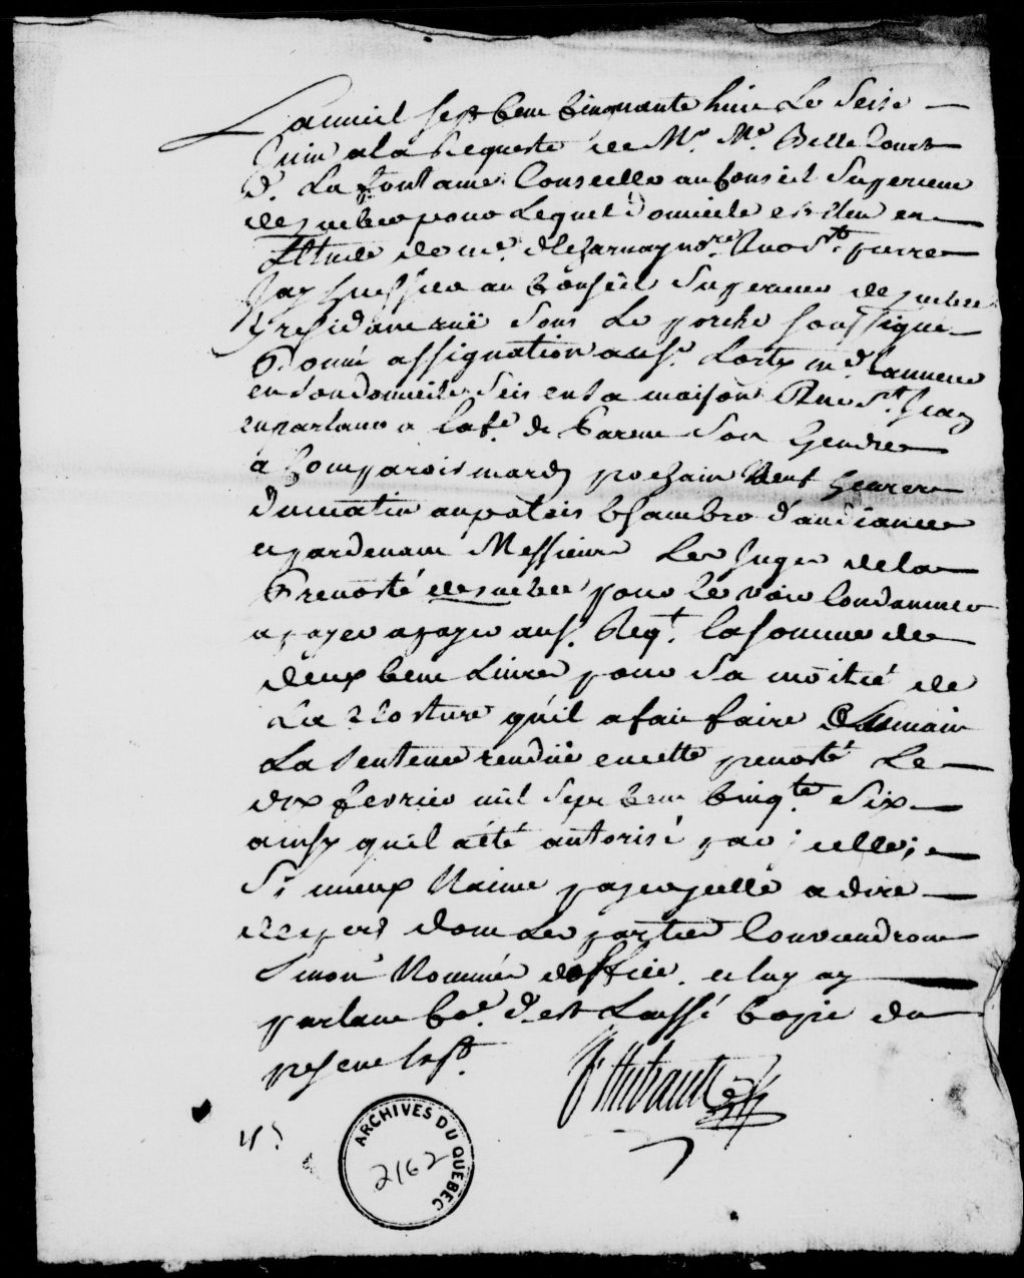 Lanmil sept Cens Cinquante huit Le Seise
Juin ala Requeste de Mr. Me. Bellecourt
D. La fontaine Conseille au Conseil Superieur
de quebec pour Lequel Domicile est Eleu en
Lettude de me. deCharnay nore. Nous St. pierre
huissier au Conseil Superieur de quebec
y residant ruë Sous Le porche soussigné
Donné assignation au Sr. Lorty md. tanneur
en Son domicile Seis en Sa maison Rue St. Jean
en parlant a lafe. de Son Gendre
a Comparoir mardy prochain Neuf heures
Du matin au palais Chambre d'audiance
et pardevant Messieurs Les Juges de la
Prevosté de quebec pour Se voir Condamner
a payer a payer au Sr. Reqt. La Somme de
deux Cens Livres pour Sa moitié de
La Closture qu'il a fait faire
La Sentence renduë en cette prevosté Le
dix fevrier mil Sept Cens Cinqte. Six
ainsy qu'il a été autorisé par icelle;
Si mieux N'aime payer celle a dire
Expers dont Les parties Conviendront
Sinon Nommés d'office. et luy ay
parlant Co. d. est Laissé Copie du
presens Expt.
Thibault
ARCHIVES DU QUÉBEC
2162